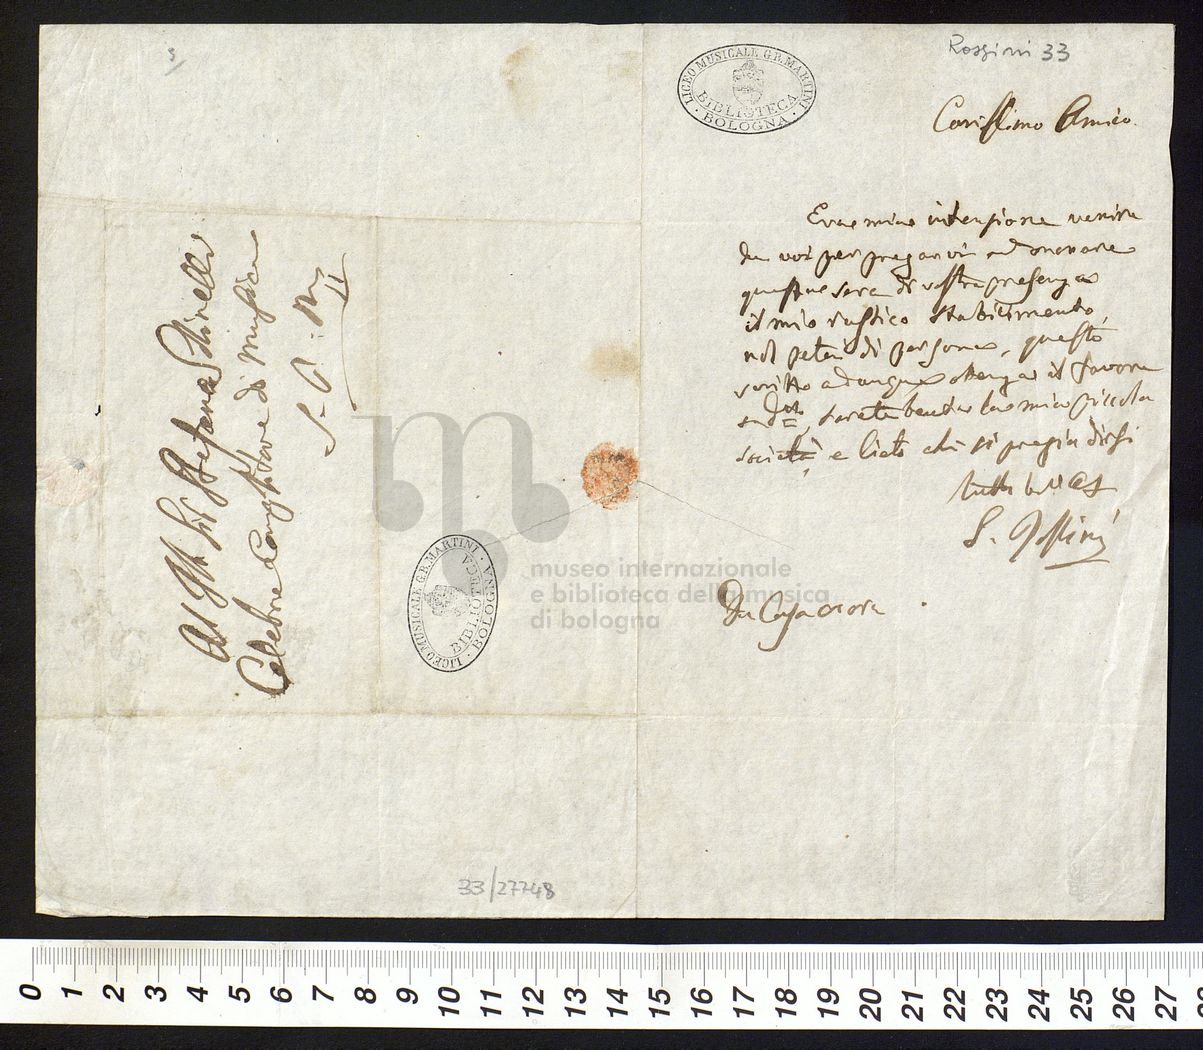 3/
LICEO MUSICALE G.B. MARTINI
BIBLIOTECA
BOLOGNA
Rossini 33
Carissimo Amico.
Era mia intenzione venire
da voi per pregarvi ad onorare
questa sera di vostra presenza
il mio rustico stabilimento,
nol potei di persona, questo
scritto adunque ottenga il favore
sudto, sarete beata la mia piccola
società e lieto chi si pregia dirsi
tutto vostro
G. Rossini
Da Casa
Al Sig Stefano
Celebre Compositore di Musica
S. P. M.
LICEO MUSICALE G.B. MARTINI
BIBLIOTECA
BOLOGNA
museo internazionale
e biblioteca della musica
di bologna
33/27748
0 1 2 3 4 5 6 7 8 9 10 11 12 13 14 15 16 17 18 19 20 21 22 23 24 25 26 27